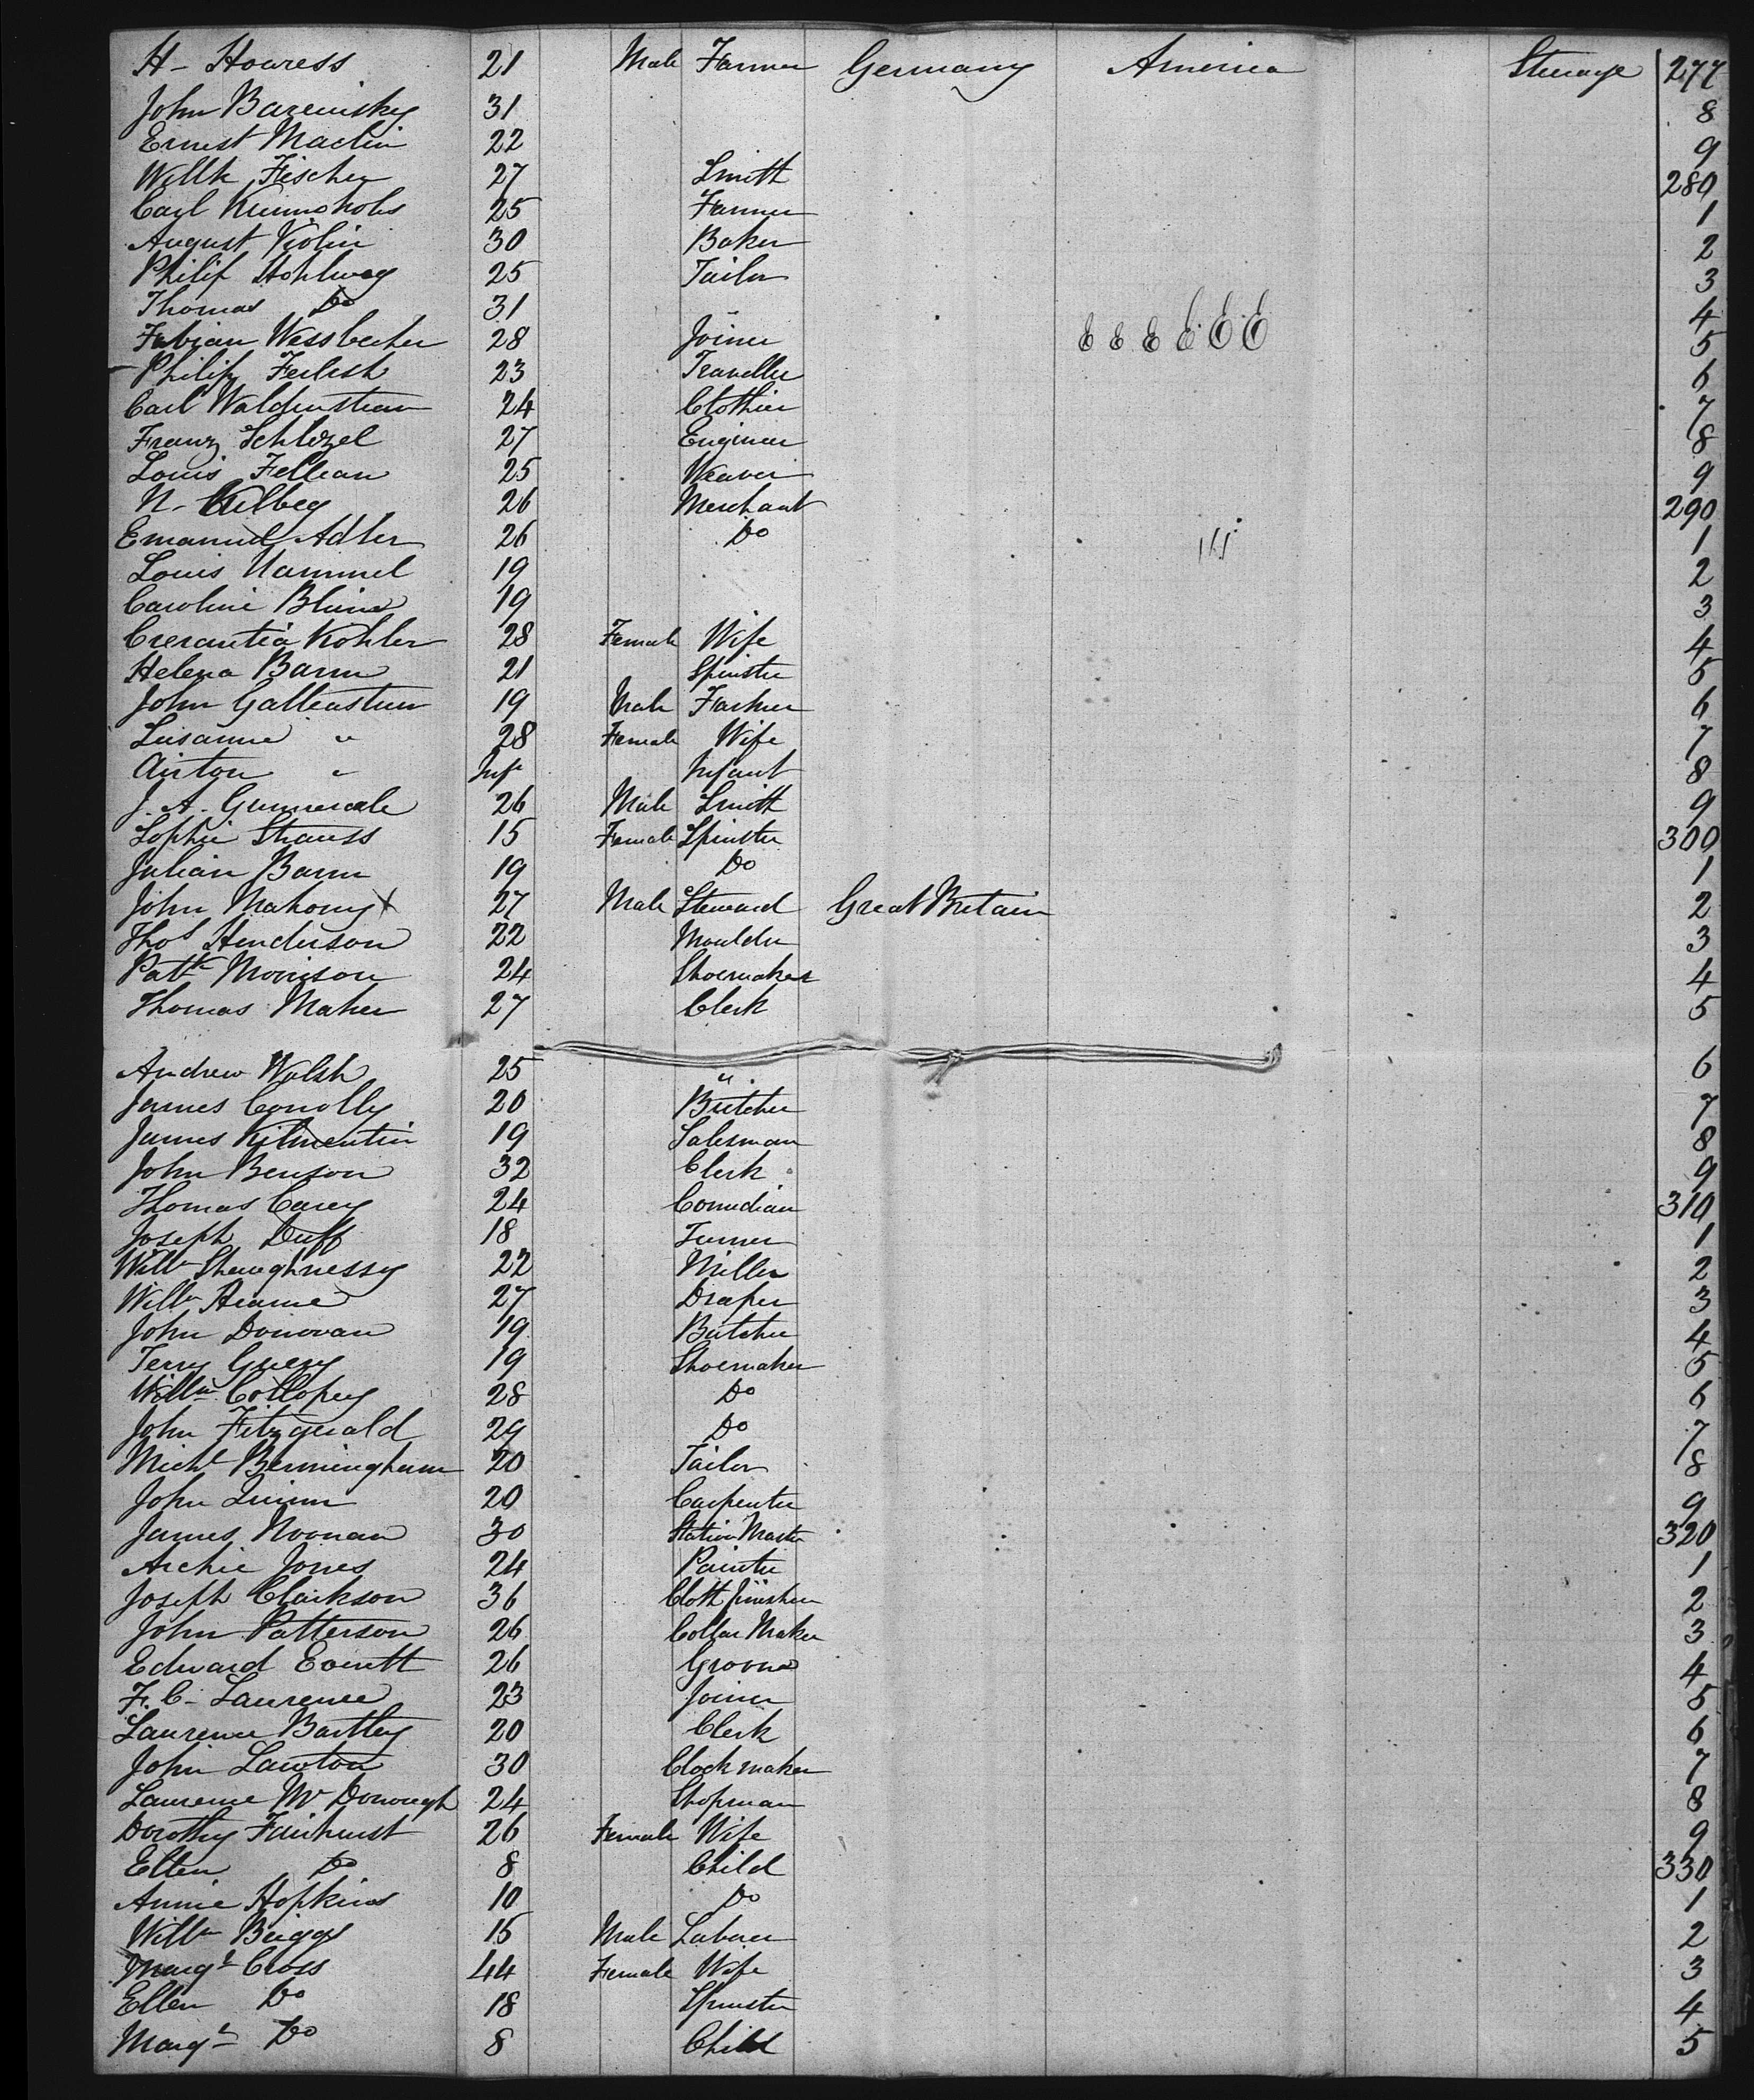 H- Howress 21 Male Farmer Germany America Steerage 277
John Bareinsky 31 8
Ernest Maclin 22 9
Willh Fischer 27 Smith 280
Carl 25 Farmer 1
August Violin 30 Baker 2
Philip Hohlweg 25 Tailor 3
Thomas Do 31 " 4
Fabian Wessbecher 28 Joiner E E E E E E 5
Philip 23 Traveller 6
Carl Waldenstein 24 Clothier 7
Franz Schlozel 27 Engineer 8
Louis Fellean 25 Weaver 9
N- 26 Merchant 290
Emanuel Adler 26 Do 1
Louis Hammel 19 2
Caroline Blum 19 3
Crerantia Kohler 28 Female Wife 4
Helena Barm 21 Spinster 5
John Gallenstein 19 Male Farmer 6
Susanne " 28 Female Wife 7
Airton " Inft Infant 8
J. A. 26 Male Smith 9
Sophie Strauss 15 Female Spinster 300
Julian Barm 19 Do 1
John Mahony X 27 Male Steward Great Britain 2
Thos Henderson 22 Moulder 3
Patk Morrison 24 Shoemaker 4
Thomas Maher 27 Clerk 5
Andrew Walsh 25 " 6
James Conolly 20 Butcher 7
James Kilmentin 19 Salesman 8
John Benson 32 Clerk 9
Thomas Carey 24 Comedian 310
Joseph Duff 18 Turner 1
Willm Shaughnessy 22 Miller 2
Willm Hearne 27 Draper 3
John Donovan 19 Butcher 4
Terry Guery 19 Shoemaker 5
Willm Collopey 28 Do 6
John Fitzgerald 29 Do 7
Michl Bermingham 20 Tailor 8
John Quinn 20 Carpenter 9
James Noonan 30 Station Master 320
Archie Jones 24 Painter 1
Joseph Clarkson 36 Cloth finisher 2
John Patterson 26 Collar Maker 3
Edward Everett 26 Groom 4
F. C- Laurence 23 Joiner 5
Laurence Bartley 20 Clerk 6
John Lawton 30 Clock maker 7
Laurence McDonough 24 Shopman 8
Dorothy Fairhurst 26 Female Wife 9
Ellen Do 8 Child 330
Annie Hopkins 10 Do 1
Willm Briggs 15 Male Laborer 2
Margt Cross 44 Female Wife 3
Ellen Do 18 Spinster 4
Margt Do 8 Child 5